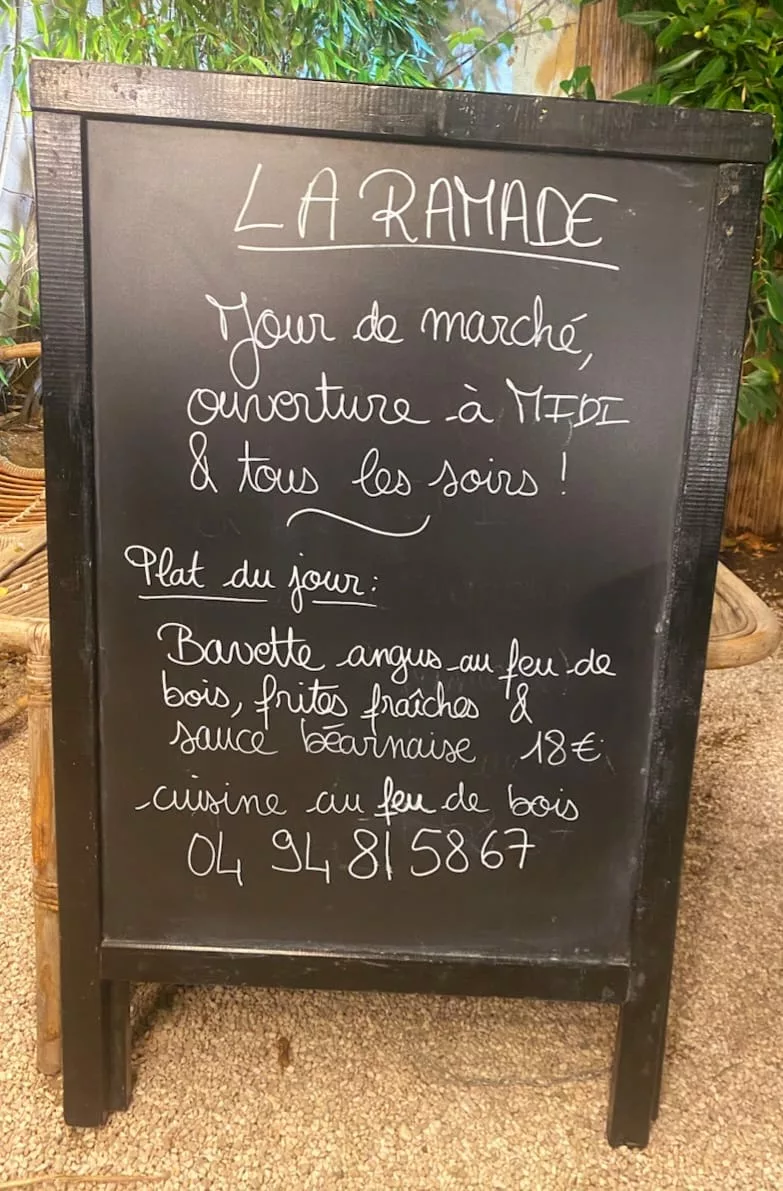 LA RAMADE
Jour de marché,
ouverture à MIDI
& tous les soirs !
Plat du jour :
Bavette angus au feu de
bois, frites fraîches &
sauce béarnaise 18€
cuisine au feu de bois
04 94 81 58 67